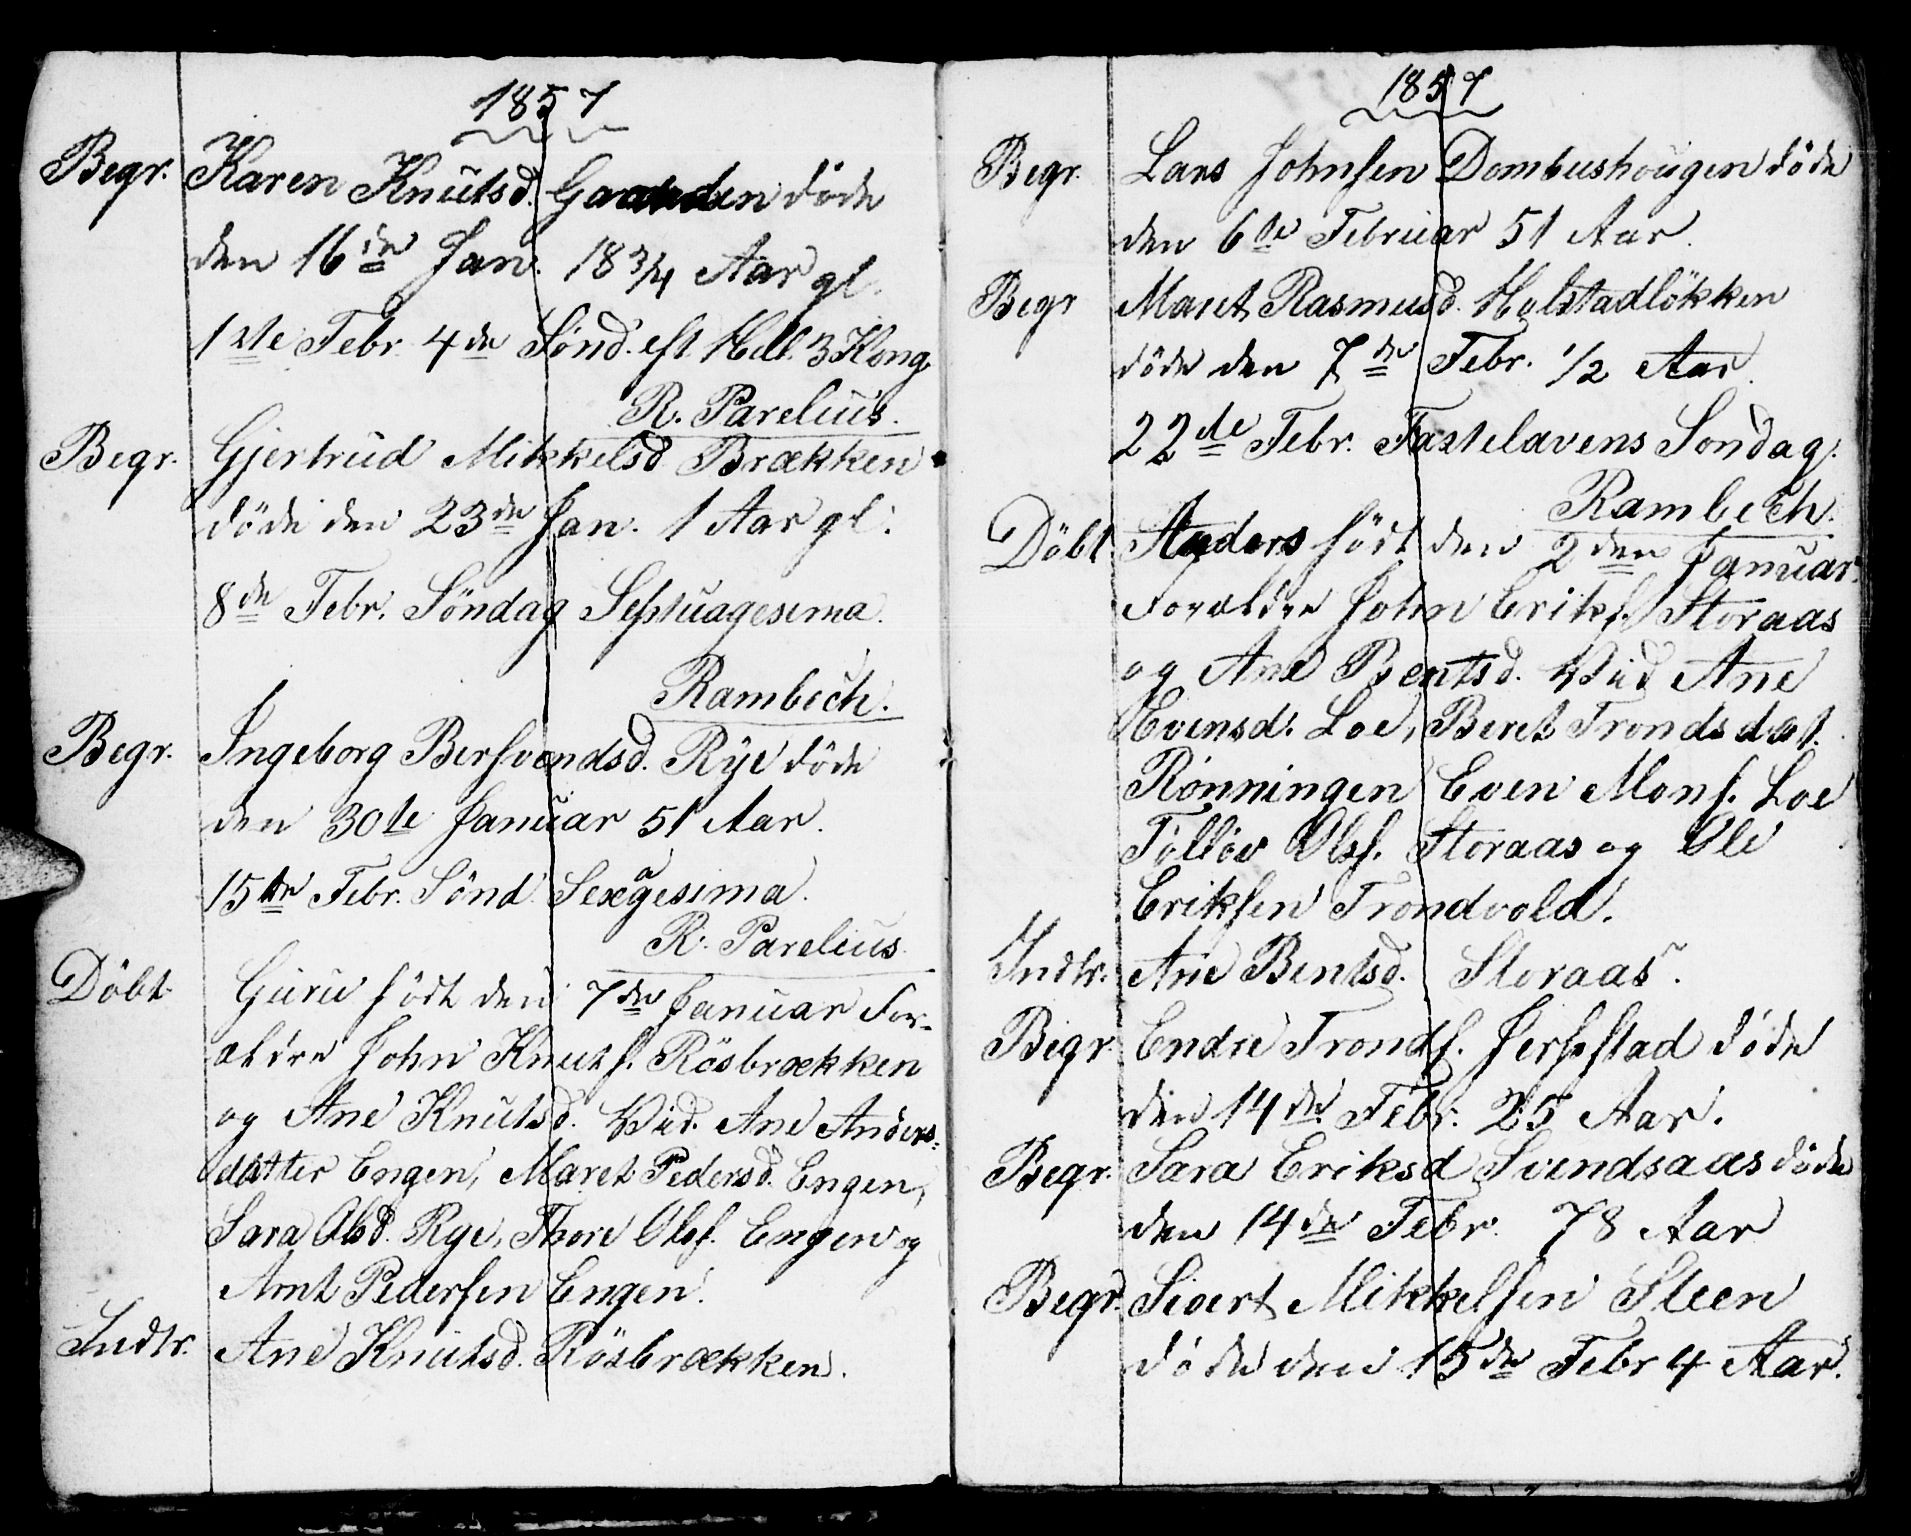 1857
Begr. Karen Knutsd. Gaarden döde
den 16de Jan. 18 3/4 Aar gl.
1ste Febr. 4de Sönd. eft Hell. 3 Kong
R. Parelius.
Begr. Gjertrud Mikkelsd. Brækken
döde den 23de Jan. 1 Aar gl.
8de Febr. Söndag Septuagesima.
Rambech.
Begr. Ingeborg Bersvendsd. Rye döde
den 30te Januar 51 Aar.
15de Febr. Sönd. Sexagesima.
R. Parelius
Döbt. Guru födt den 7de Januar For-
ældre John Knuts. Rösbrækken
og Ane Knutsd. Vid. Ane Anders-
datter Engen, Maret Pedersd. Engen,
Sara Olsd. Rye, Thore Ols. Engen og
Arnt Pedersen Engen.
Indtr. Ane Knutsd. Rösbrækken.
1857
Begr. Lars Johnsen Dombushougen döde
den 6te Februar 51 Aar.
Begr Maret Rasmusd. Holstadlökken
döde den 7de Febr. 1/2 Aar.
22de Febr. Fastelavens Sondag.
Rambech.
Döbt. Anders födt den 2den Januar.
Forældre John Eriks. Storaas
og Ane Bentsd. Vid Ane
Evensd. Loe, Beret Trondsdat.
Rönningen Even Mons. Loe
Tølløv Ols. Storaas og Ole
Eriksen Trondvold.
Indtr. Ane Bentsd. Storaas.
Begr. Endre Tronds. Jerpstad döde
den 14de Febr. 25 Aar.
Begr. Sara Eriksd Svendsaas döde
den 14de Febr. 78 Aar
Begr. Sivert Mikkelsen Steen
döde den 15de Febr 4 Aar.